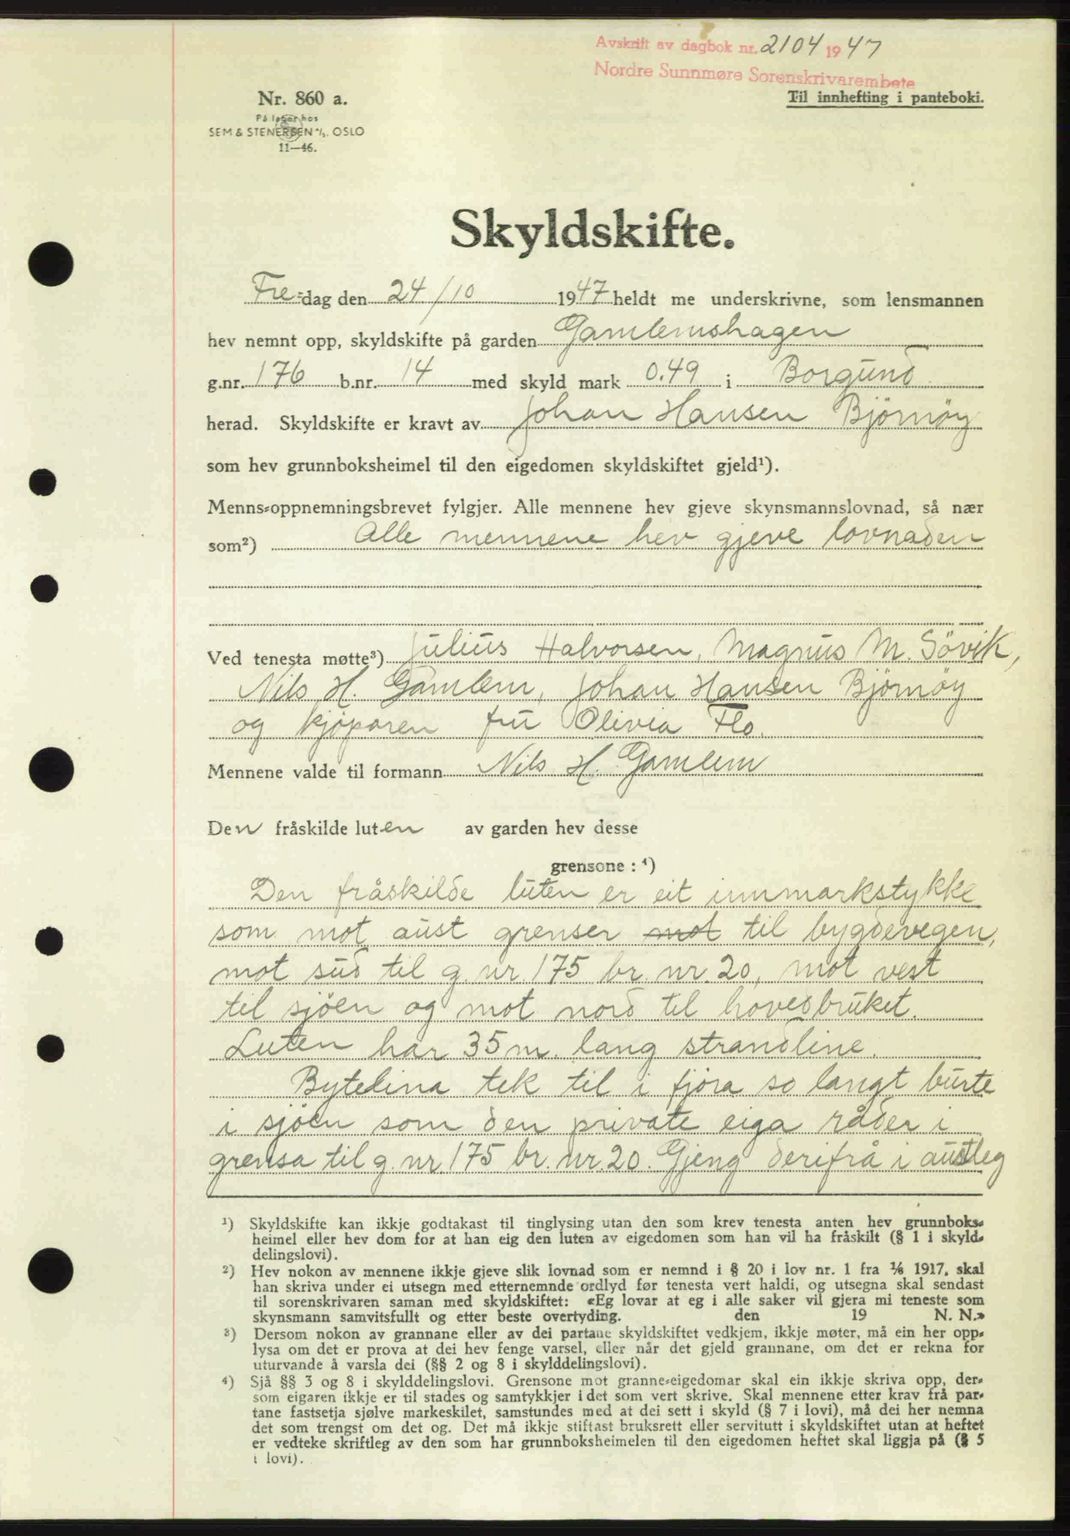 Avskrift av dagbok nr. 2104 1947
Nordre Sunnmøre Sorenskrivarembete
Nr. 860 a.
Til innhefting i panteboki.
På lager hos
SEM & STENERSEN A/S. OSLO
11—46.
Skyldskifte.
Fre-dag den 24/10 1947 heldt me underskrivne, som lensmannen
hev nemnt opp, skyldskifte på garden Gamlemshagen
g.nr. 176 b.nr. 14 med skyld mark 0.49 i Borgund
herad. Skyldskifte er kravt av Johan Hansen Björnöy
som hev grunnboksheimel til den eigedomen skyldskiftet gjeld¹).
Menns-oppnemningsbrevet fylgjer. Alle mennene hev gjeve skynsmannslovnad, så nær
som²) Alle mennene hev gjeve lovnaden
Ved tenesta møtte³) Julius Halvorsen, Magnus M. Sövik,
Nils H. Gamlem, Johan Hansen Björnöy
og kjöparen fru Olivia Flo.
Mennene valde til formann Nils H. Gamlem
Den fråskilde luten av garden hev desse
grensone : ⁴)
Den fråskilde luten er eit innmarkstykke
som mot aust grenser mot til bygdevegen,
mot sud til g. nr. 175 br. nr. 20, mot vest
til sjöen og mot nord til hovedbruket.
Luten har 35 m. lang strandline.
Bytelina tek til i fjöra so langt burte
i sjöen som den private eiga råder i
grensa til g. nr 175 br. nr. 20. Gjeng derifrå i austleg
¹) Skyldskifte kan ikkje godtakast til tinglysing utan den som krev tenesta anten hev grunnboks-
heimel eller hev dom for at han eig den luten av eigedomen som han vil ha fråskilt (§ 1 i skyld-
delingslovi).
²) Hev nokon av mennene ikkje gjeve slik lovnad som er nemnd i § 20 i lov nr. 1 fra 1/6 1917, skal
han skriva under ei utsegn med etternemnde ordlyd før tenesta vert haldi, og utsegna skal sendast
til sorenskrivaren saman med skyldskiftet: «Eg lovar at eg i alle saker vil gjera mi teneste som
skynsmann samvitsfullt og etter beste overtyding. den 19 N. N.»
³) Dersom nokon av grannane eller av dei partane skyldskiftet vedkjem, ikkje møter, må ein her opp-
lysa om det er prova at dei hev fenge varsel, eller når det gjeld grannane, om det er rekna for
uturvande å varsla dei (§§ 2 og 8 i skylddelingslovi).
⁴) Sjå §§ 3 og 8 i skylddelingslovi. Grensone mot granne-eigedomar skal ein ikkje skriva opp, der-
som eigaren ikkje er til stades og samtykkjer i det som vert skrive. Skal mennene etter krav frå par-
tane fastsetja sjølve markeskilet, samstundes med at dei sett i skyld (§ 7 i lovi), må dei her nemna
det som trengst om det og. Det må ikkje stiftast bruksrett eller servitutt i skyldskiftet utan at heftet
er vedteke skriftleg av den som har grunnboksheimelen til den eigedomen heftet skal liggja på (§ 5
i lovi).